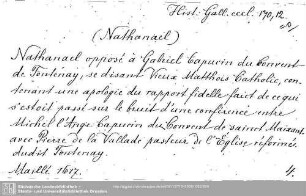 Hist. Gall. eccl. 190, 12
(Nathanael)
Nathanael opposé à Gabriel Capucin du Convent
de Fontenay, se disant Vieux Matthois Catholic, con,
tenant une apologie du rapport fidelle fait de ce qui
s'estoit passé sur le bruit d'une conference entre
Michel l'Ange Capucin du Convent de sainct Maixant
avec Pierre de la Vallade pasteur de l'Eglise reformée
dudit Fontenay.
Maillé 1617. 4.